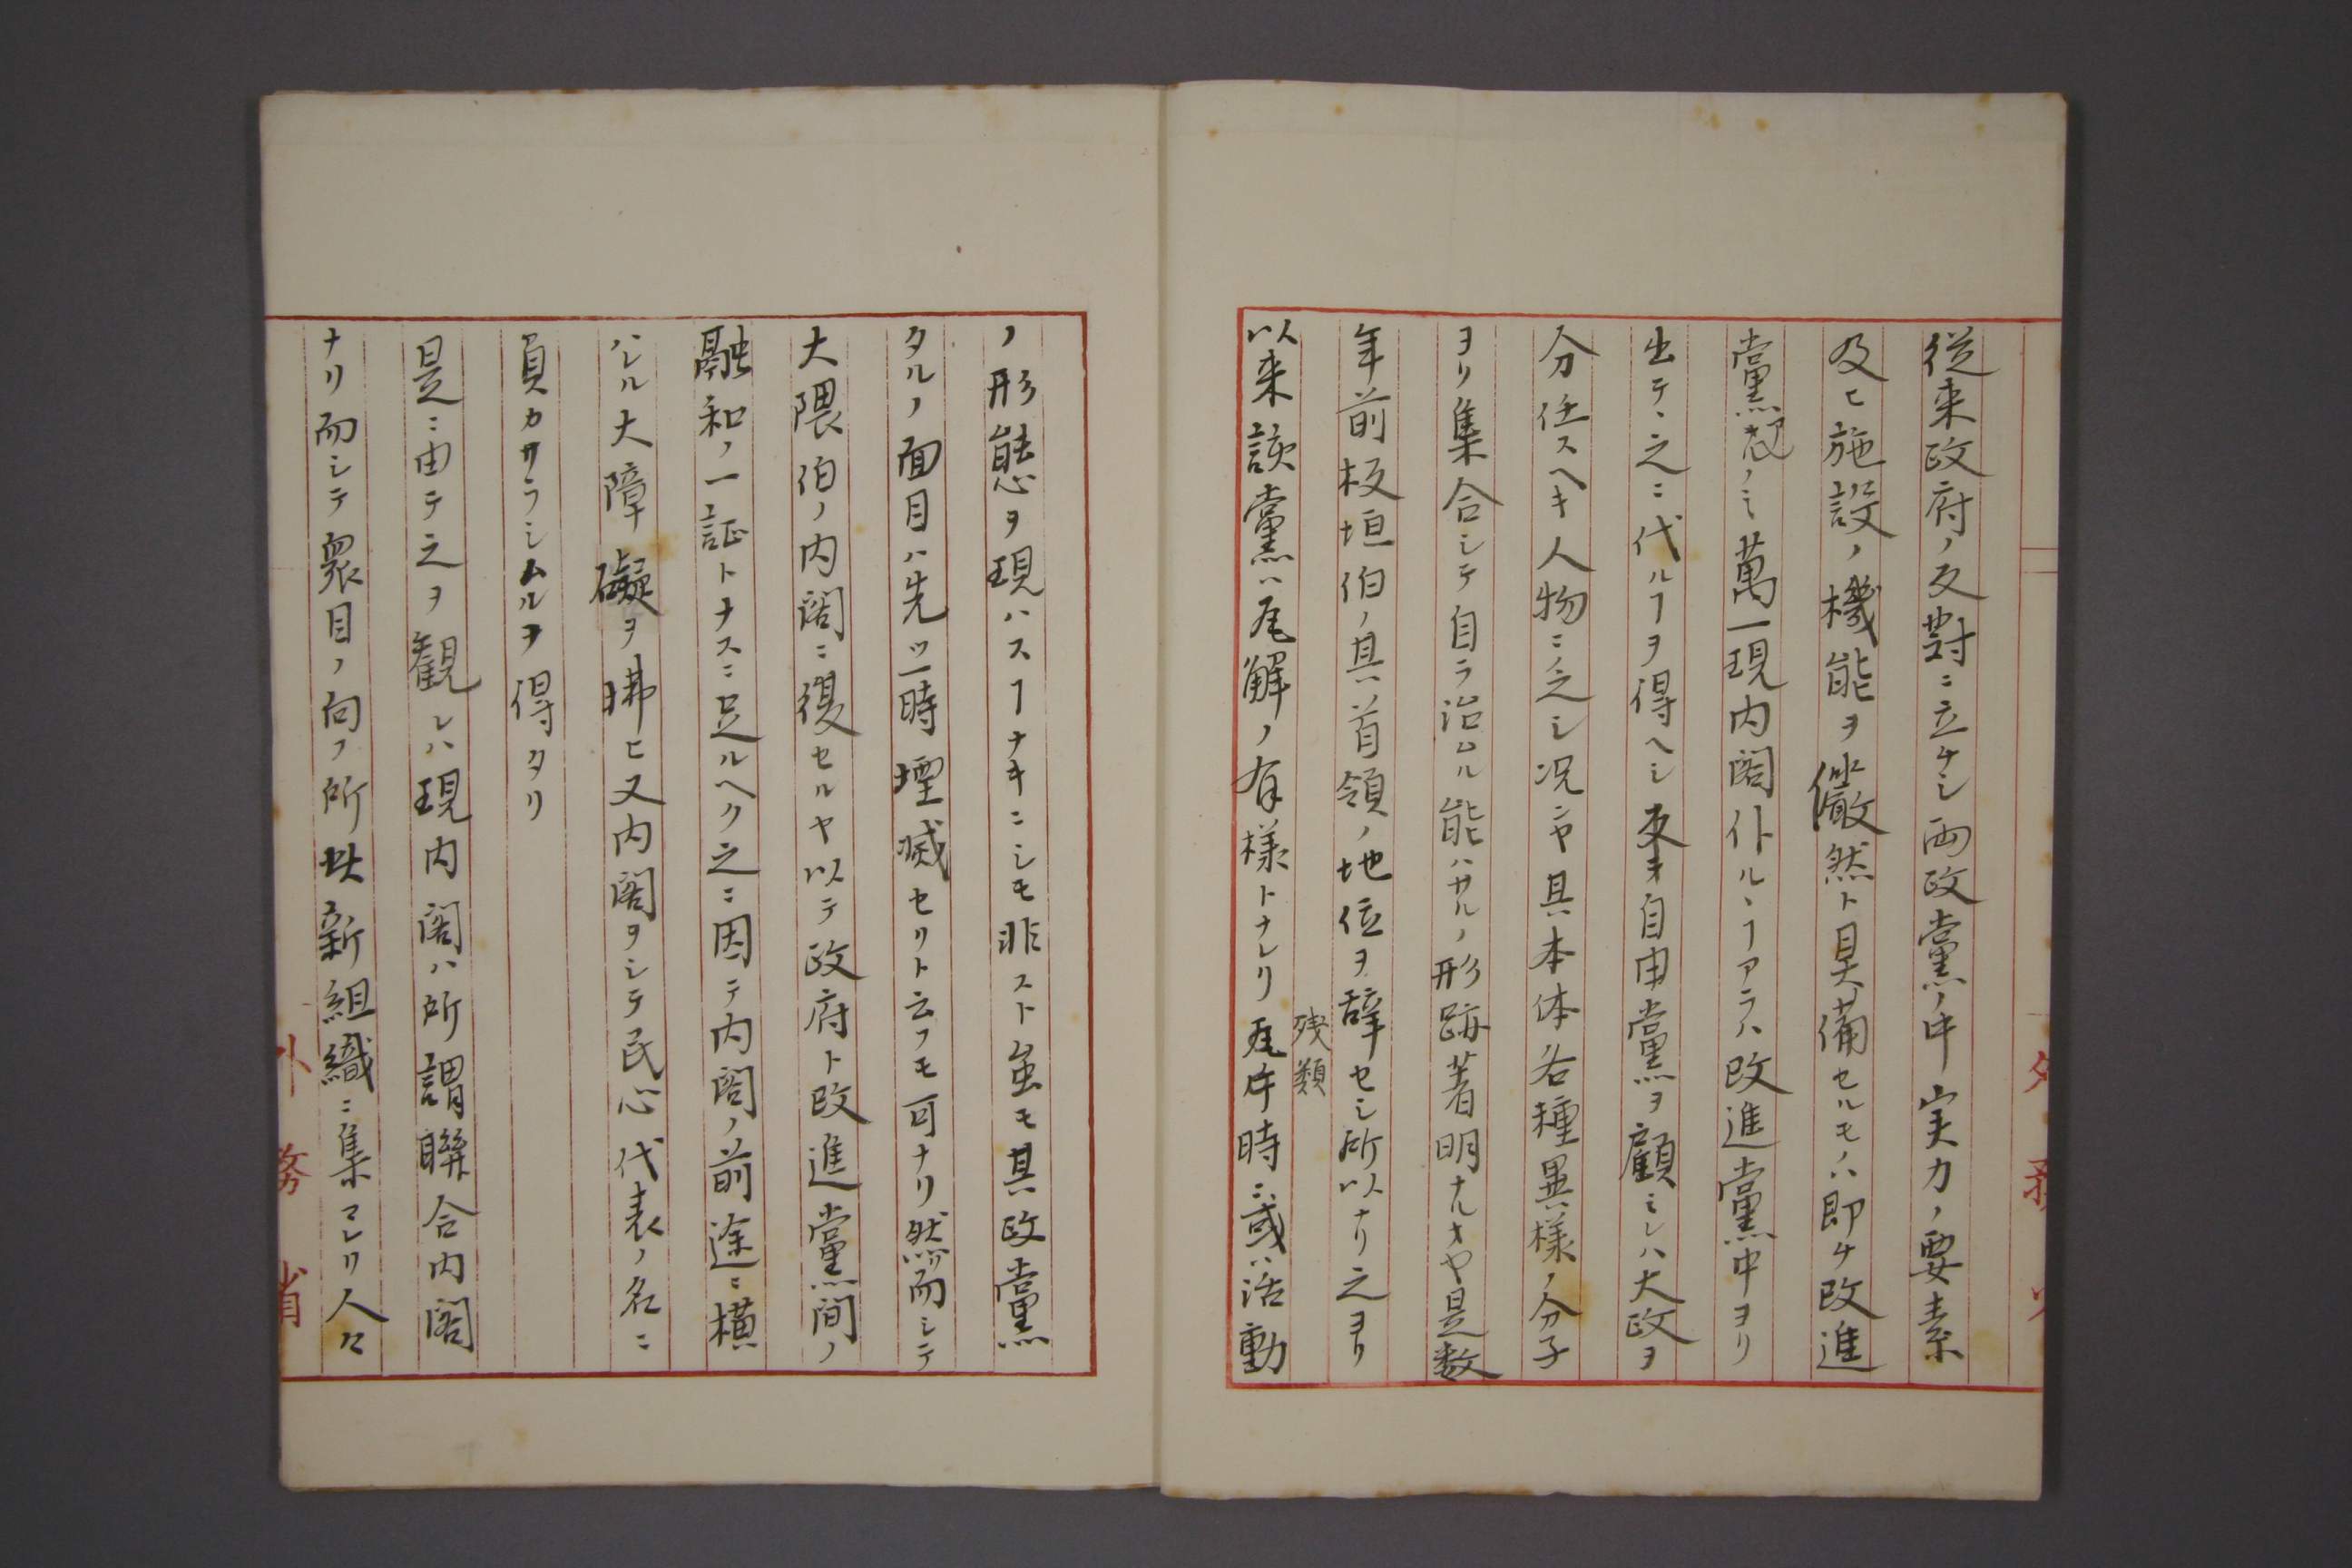 従来政府ノ反對ニ立チシ両政黨ノ中実力ノ要素
及ヒ施設ノ機能ヲ儼然ト具備セルモノハ即チ改進
黨ノミ萬一現内閣仆ルヽヿアラハ改進黨中ヨリ
出テヽ之ニ代ルヿヲ得ヘシ自由黨ヲ顧ミレハ大政ヲ
分任スヘキ人物ニ乏シ况ンヤ其本体各種異様ノ分子
ヨリ集合シテ自ラ治ムル能ハサルノ形跡著明ナルオヤ是数
年前板垣伯ノ其首領ノ地位ヲ辞セシ所以ナリ之ヨリ
残類
以来該黨ハ瓦解ノ有様トナレリ瓦片時ニ或ハ活動
ノ形態ヲ現ハスヿナキニシモ非スト虽モ其政黨
タルノ面目ハ先ツ一時堙滅セリト云フモ可ナリ然リ而シテ
大隈伯ノ内閣ニ復セルヤ以テ政府ト改進黨間ノ
融和ノ一証トナスニ足ルヘク之ニ因テ内閣ノ前途ニ横
ハレル大障礙ヲ拂ヒ又内閣ヲシテ民心代表ノ名ニ
負カサラシムルヲ得タリ
是ニ由テ之ヲ観レハ現内閣ハ所謂聯合内閣
ナリ而シテ衆目ノ向フ所此新組織ニ集マレリ人々
外務省